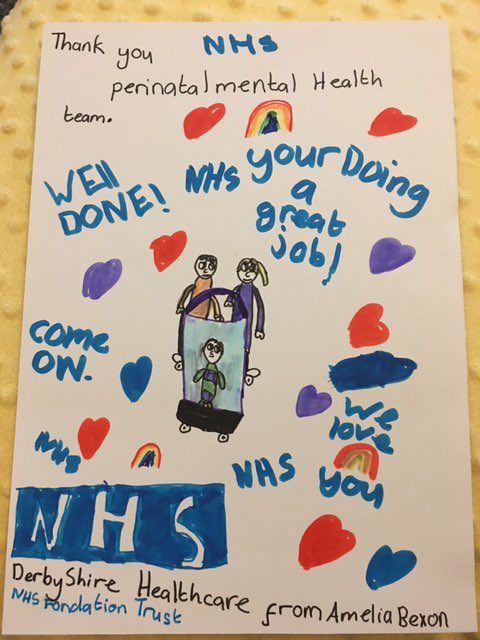 Thank you NHS
perinatal mental Health
team.
WEll
DONE!
NHS
your Doing
a
great
job!
come
ON.
we
love
you
NHS
NHS
NHS
DerbyShire Healthcare
NHS Fondation Trust
from Amelia Bexon